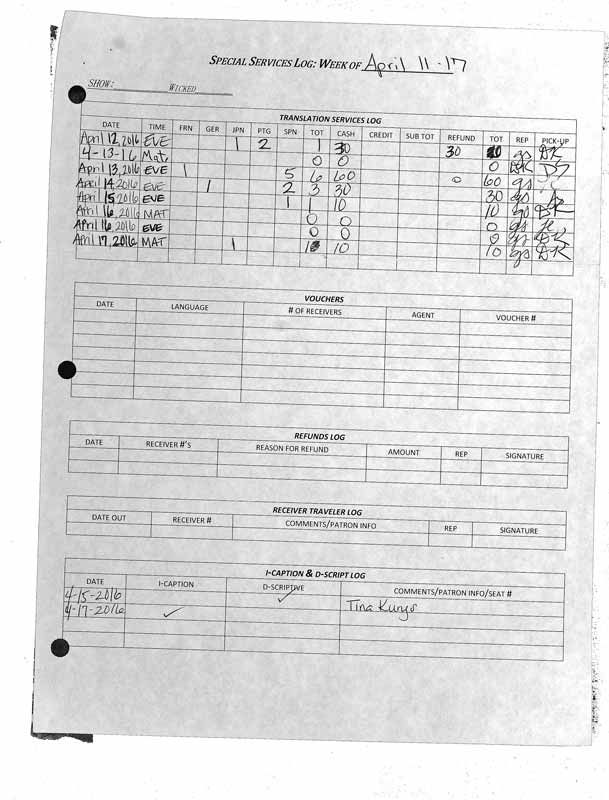 SPECIAL SERVICES LOG: WEEK OF April 11-17
SHOW: WICKED
TRANSLATION SERVICES LOG
DATE TIME FRN GER JPN PTG SPN TOT CASH CREDIT SUB TOT REFUND TOT REP PICK-UP
April 12, 2016 EVE 1 2 1 30 30 gs DK
4-13-16 Mat. 0 0 0
April 13, 2016 EVE 1 5 6 60 0 60 gs
April 14, 2016 EVE 1 2 3 30 30 gs
April 15 2016 EVE 1 1 10 10 gs DK
April 16, 2016 MAT 0 0 0 gs
April 16, 2016 EVE 0 0 0 gs DK
April 17, 2016 MAT 1 10 10 gs DK
VOUCHERS
DATE LANGUAGE # OF RECEIVERS AGENT VOUCHER #
REFUNDS LOG
DATE RECEIVER #'S REASON FOR REFUND AMOUNT REP SIGNATURE
RECEIVER TRAVELER LOG
DATE OUT RECEIVER # COMMENTS/PATRON INFO REP SIGNATURE
I-CAPTION & D-SCRIPT LOG
DATE I-CAPTION D-SCRIPTIVE COMMENTS/PATRON INFO/SEAT #
4-15-2016 ✓
4-17-2016 ✓ Tina Kunys